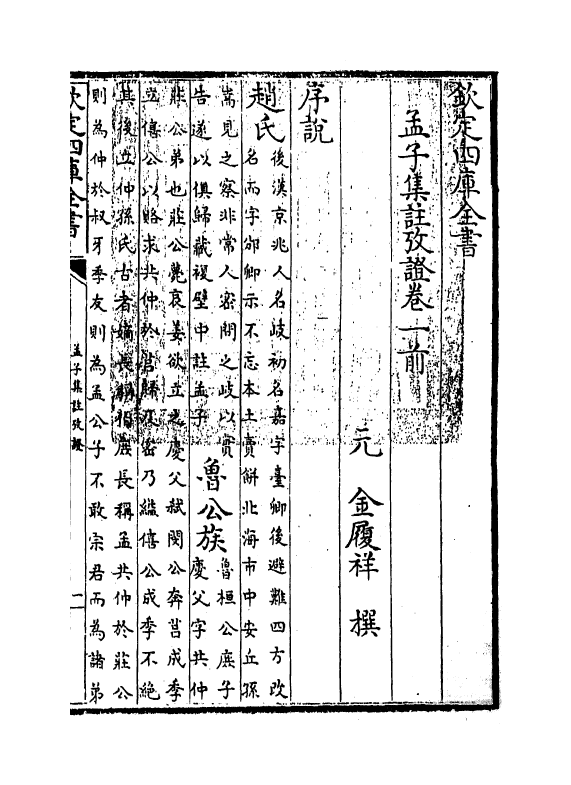 欽定四庫全書
孟子集註攷證卷一前
元 金履祥 撰
序說
趙氏後漢京兆人名岐初名嘉字臺卿後避難四方改
名而字邠卿示不忘本土賣餅北海市中安丘孫
嵩見之察非常人密問之岐以實
告遂以俱歸藏複壁中註孟子魯公族魯桓公庶子
慶父字共仲
莊公弟也莊公薨哀姜欲立之慶父弒閔公奔莒成季
立僖公以賂求共仲於莒歸及密乃縊僖公成季不絕
其後立仲孫氏古者嫡長稱伯庶長稱孟共仲於莊公
則為仲於叔牙季友則為孟公子不敢宗君而為諸弟
欽定四庫全書
孟子集註攷證